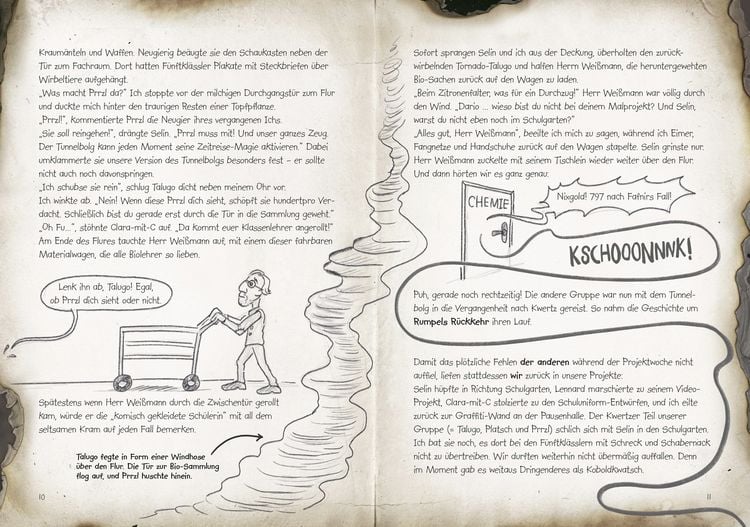 Kraumänteln und Waffen. Neugierig beäugte sie den Schaukasten neben der
Tür zum Fachraum. Dort hatten Fünftklässler Plakate mit Steckbriefen über
Wirbeltiere aufgehängt.
„Was macht Prrzl da?" Ich stoppte vor der milchigen Durchgangstür zum Flur
und duckte mich hinter den traurigen Resten einer Topfpflanze.
„Prrzl!", kommentierte Prrzl die Neugier ihres vergangenen Ichs.
„Sie soll reingehen!", drängte Selin. „Prrzl muss mit! Und unser ganzes Zeug.
Der Tunnelbolg kann jeden Moment seine Zeitreise-Magie aktivieren." Dabei
umklammerte sie unsere Version des Tunnelbolgs besonders fest – er sollte
nicht auch noch davonspringen.
„Ich schubse sie rein", schlug Talugo dicht neben meinem Ohr vor.
Ich winkte ab. „Nein! Wenn diese Prrzl dich sieht, schöpft sie hundertpro Ver-
dacht. Schließlich bist du gerade erst durch die Tür in die Sammlung geweht."
„Oh Fu...", stöhnte Clara-mit-C auf. „Da kommt euer Klassenlehrer angerollt!"
Am Ende des Flures tauchte Herr Weißmann auf, mit einem dieser fahrbaren
Materialwagen, die alle Biolehrer so lieben.
Lenk ihn ab, Talugo! Egal,
ob Prrzl dich sieht oder nicht.
Spätestens wenn Herr Weißmann durch die Zwischentür gerollt
kam, würde er die „komisch gekleidete Schülerin" mit all dem
seltsamen Kram auf jeden Fall bemerken.
Talugo fegte in Form einer Windhose
über den Flur. Die Tür zur Bio-Sammlung
flog auf, und Prrzl huschte hinein.
10
Sofort sprangen Selin und ich aus der Deckung, überholten den zurück-
wirbelnden Tornado-Talugo und halfen Herrn Weißmann, die heruntergewehten
Bio-Sachen zurück auf den Wagen zu laden.
„Beim Zitronenfalter, was für ein Durchzug!" Herr Weißmann war völlig durch
den Wind. „Dario ... wieso bist du nicht bei deinem Malprojekt? Und Selin,
warst du nicht eben noch im Schulgarten?"
„Alles gut, Herr Weißmann", beeilte ich mich zu sagen, während ich Eimer,
Fangnetze und Handschuhe zurück auf den Wagen stapelte. Selin grinste nur.
Herr Weißmann zuckelte mit seinem Tischlein wieder weiter über den Flur.
Und dann hörten wir es ganz genau:
CHEMIE
Nixgold! 797 nach Fafnirs Fall!
KSCHOOONNNK!
Puh, gerade noch rechtzeitig! Die andere Gruppe war nun mit dem Tunnel-
bolg in die Vergangenheit nach Kwertz gereist. So nahm die Geschichte um
Rumpels Rückkehr ihren Lauf.
Damit das plötzliche Fehlen der anderen während der Projektwoche nicht
auffiel, liefen stattdessen wir zurück in unsere Projekte:
Selin hüpfte in Richtung Schulgarten, Lennard marschierte zu seinem Video-
Projekt, Clara-mit-C stolzierte zu den Schuluniform-Entwürfen, und ich eilte
zurück zur Graffiti-Wand an der Pausenhalle. Der Kwertzer Teil unserer
Gruppe (= Talugo, Platsch und Prrzl) schlich sich mit Selin in den Schulgarten.
Ich bat sie noch, es dort bei den Fünftklässlern mit Schreck und Schabernack
nicht zu übertreiben. Wir durften weiterhin nicht übermäßig auffallen. Denn
im Moment gab es weitaus Dringenderes als Koboldkwatsch.
11